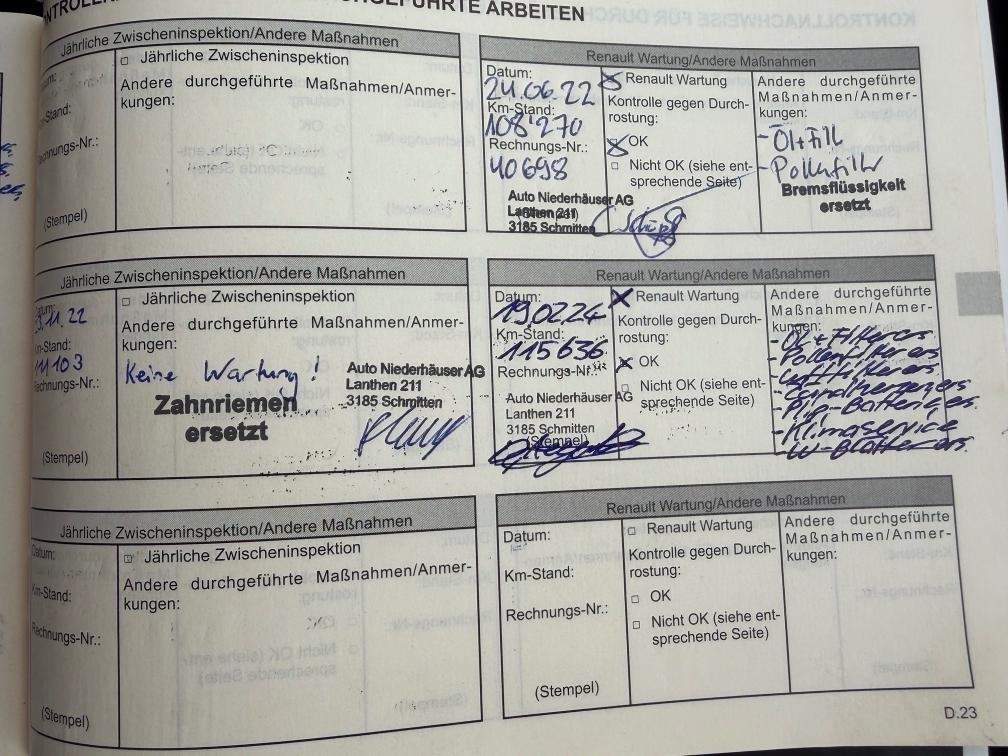 ARBEITEN
Jährliche Zwischeninspektion/Andere Maßnahmen
Jährliche Zwischeninspektion
Andere durchgeführte Maßnahmen/Anmer-
kungen:
(Stempel)
Renault Wartung/Andere Maßnahmen
Datum:
24.06.22
Km-Stand:
108'270
Rechnungs-Nr.:
40698
Auto Niederhäuser AG
Lanthen 211
3185 Schmitten
Renault Wartung
Kontrolle gegen Durch-
rostung:
OK
Nicht OK (siehe ent-
sprechende Seite)
Andere durchgeführte
Maßnahmen/Anmer-
kungen:
- Öl + Filt
- Pollenfilter
Bremsflüssigkeit
ersetzt
Jährliche Zwischeninspektion/Andere Maßnahmen
11.22
Km-Stand:
111103
Rechnungs-Nr.:
(Stempel)
Jährliche Zwischeninspektion
Andere durchgeführte Maßnahmen/Anmer-
kungen:
Keine Wartung!
Zahnriemen
ersetzt
Auto Niederhäuser AG
Lanthen 211
3185 Schmitten
Renault Wartung/Andere Maßnahmen
Datum:
19.02.24
Km-Stand:
115636
Rechnungs-Nr.:
Auto Niederhäuser AG
Lanthen 211
3185 Schmitten
(Stempel)
Renault Wartung
Kontrolle gegen Durch-
rostung:
OK
Nicht OK (siehe ent-
sprechende Seite)
Andere durchgeführte
Maßnahmen/Anmer-
kungen:
- Öl + Filter ers.
- Pollenfilter ers
- Luftfilter ers
- Klimaservice
- W-Blätter ers.
Jährliche Zwischeninspektion/Andere Maßnahmen
Datum:
Km-Stand:
Rechnungs-Nr.:
(Stempel)
Jährliche Zwischeninspektion
Andere durchgeführte Maßnahmen/Anmer-
kungen:
Renault Wartung/Andere Maßnahmen
Datum:
Km-Stand:
Rechnungs-Nr.:
(Stempel)
Renault Wartung
Kontrolle gegen Durch-
rostung:
OK
Nicht OK (siehe ent-
sprechende Seite)
Andere durchgeführte
Maßnahmen/Anmer-
kungen:
D.23